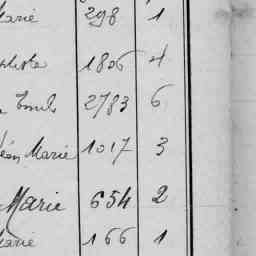 Marie 298 1
1806 4
Emile 2783 6
Léon Marie 1017 3
Marie 654 2
Marie 166 1